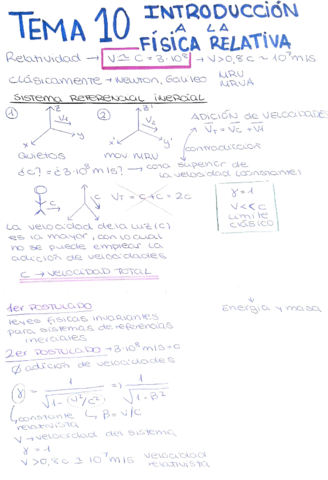 TEMA 10 INTRODUCCIÓN
A LA
FÍSICA RELATIVA
Relatividad → V ≃ C = 3·10⁸ → V > 0,8c ~ 10⁷ m/s
Clásicamente → Newton, Galileo MRU
MRUA
SISTEMA REFERENCIAL INERCIAL
① z V₁ y x
② z' V₂ y' x'
ADICIÓN DE VELOCIDADES
V_T = V_C + V_1
contradicción
Quietos mov MRU
¿c? = ¿3·10⁸ m/s? → cota superior de
la velocidad (constante)
C C V_T = C + C = 2C
γ = 1
V << C
límite
clásico
La velocidad de la luz (c)
es la mayor, con lo cual
no se puede emplear la
adición de velocidades
C → VELOCIDAD TOTAL
1er POSTULADO
leyes físicas invariantes
para sistemas de referencias
inerciales
Energía y masa
2er POSTULADO → 3·10⁸ m/s = C
∅ adición de velocidades
γ = 1/√(1-(V²/C²)) => 1/√(1-β²)
constante β = V/C
relativista
V → velocidad del sistema
γ = 1
V > 0,8c ≃ 10⁷ m/s velocidad
relativista